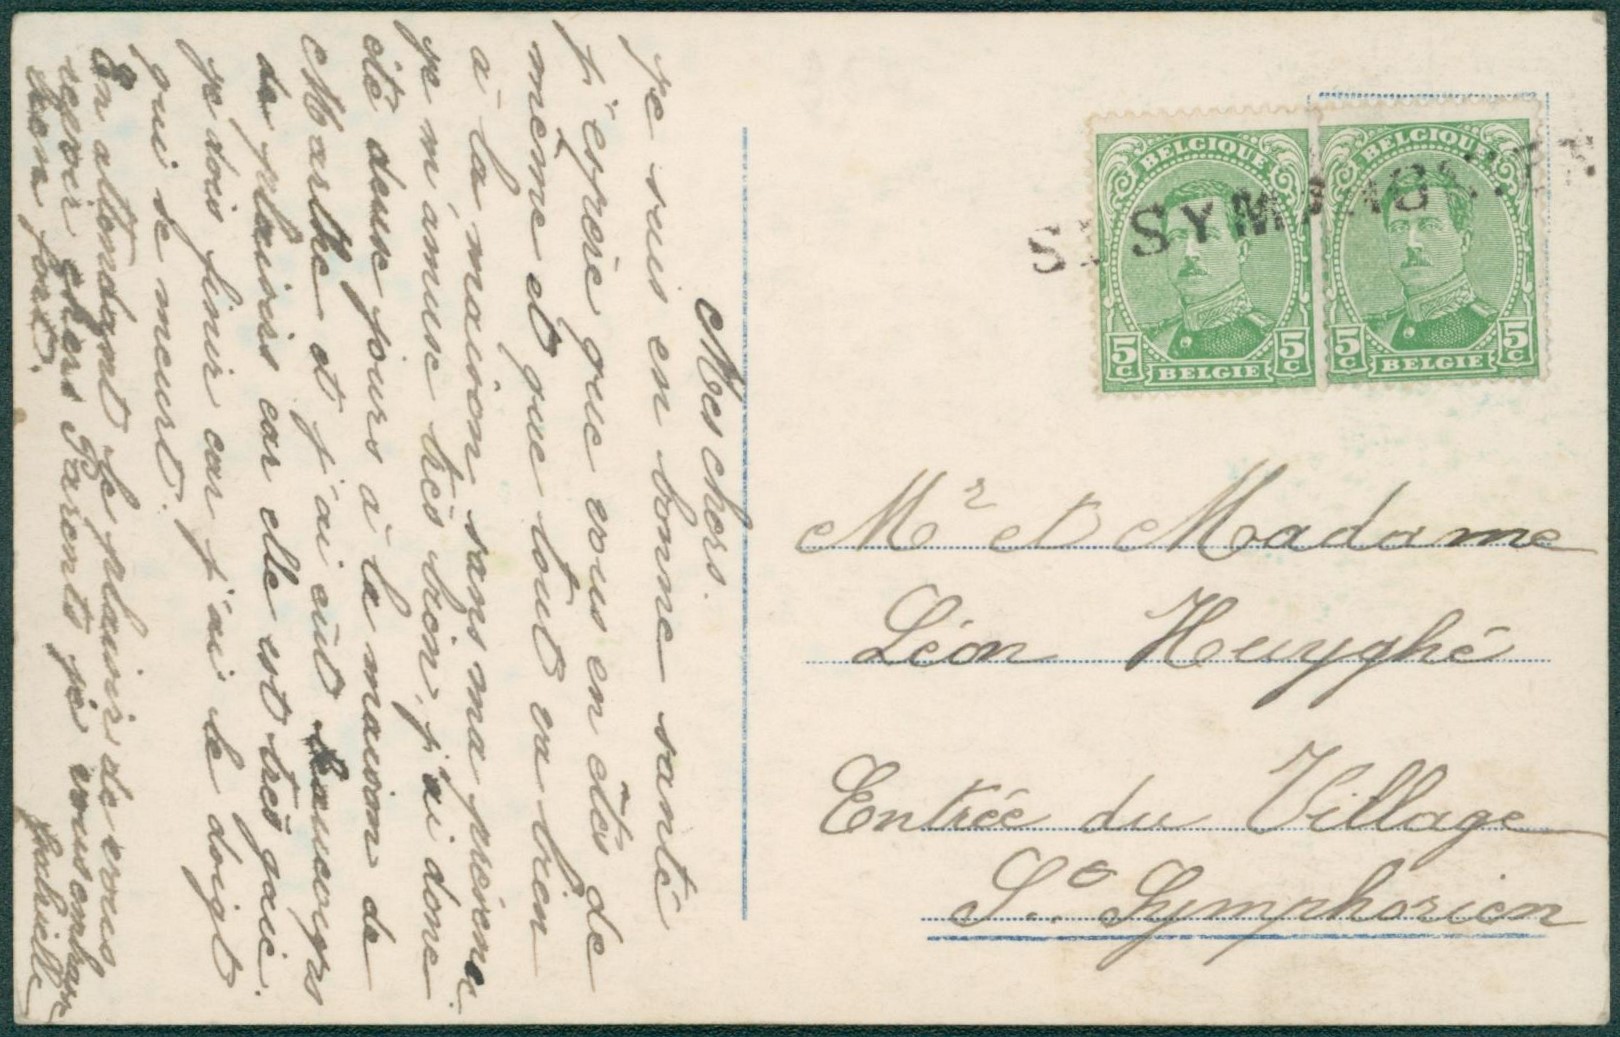 Mes chers.
Je suis en bonne santé
j'espère que vous en êtes de
même et que tout va bien
à la maison sans ma présence.
Je m'amuse très bien, j'ai donc
été deux jours à la maison de
Marthe et j'ai eût beaucoups
de plaisirs car elle est très gaie.
Je dois finir car j'ai le doigt
qui se meurt.
En attendant le plaisir de vous
revoir chers Parents je vous embrasse
bien fort.
Gabrielle
BELGIQUE
5 C
5 C
BELGIE
BELGIQUE
5 C
5 C
BELGIE
St SYMPHORIEN
Mr et Madame
Léon Huyghé
Entrée du Village
St. Symphorien